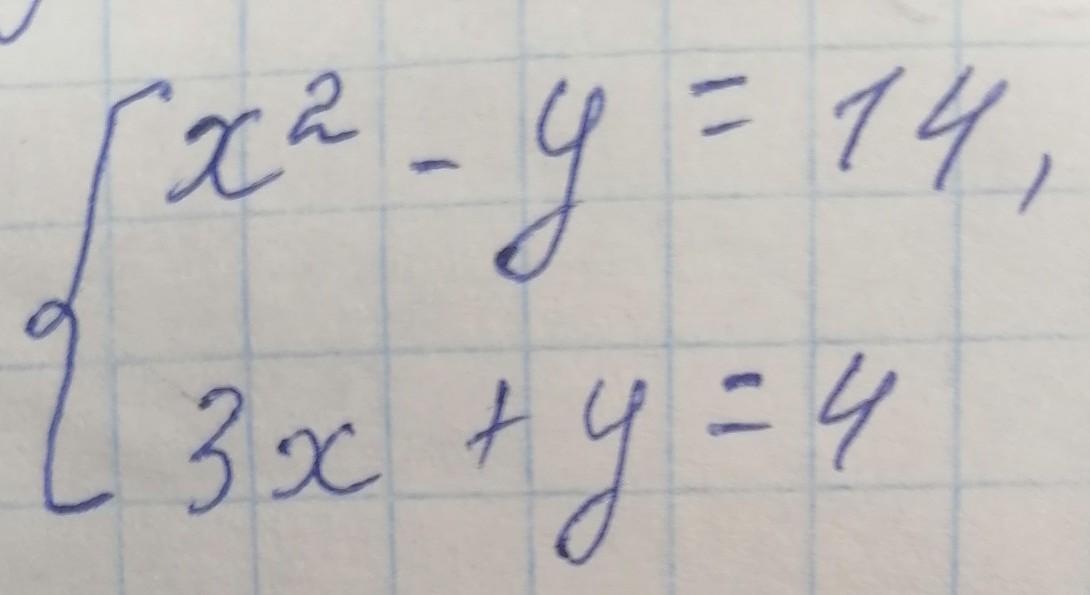 x² - y = 14,
3x + y = 4